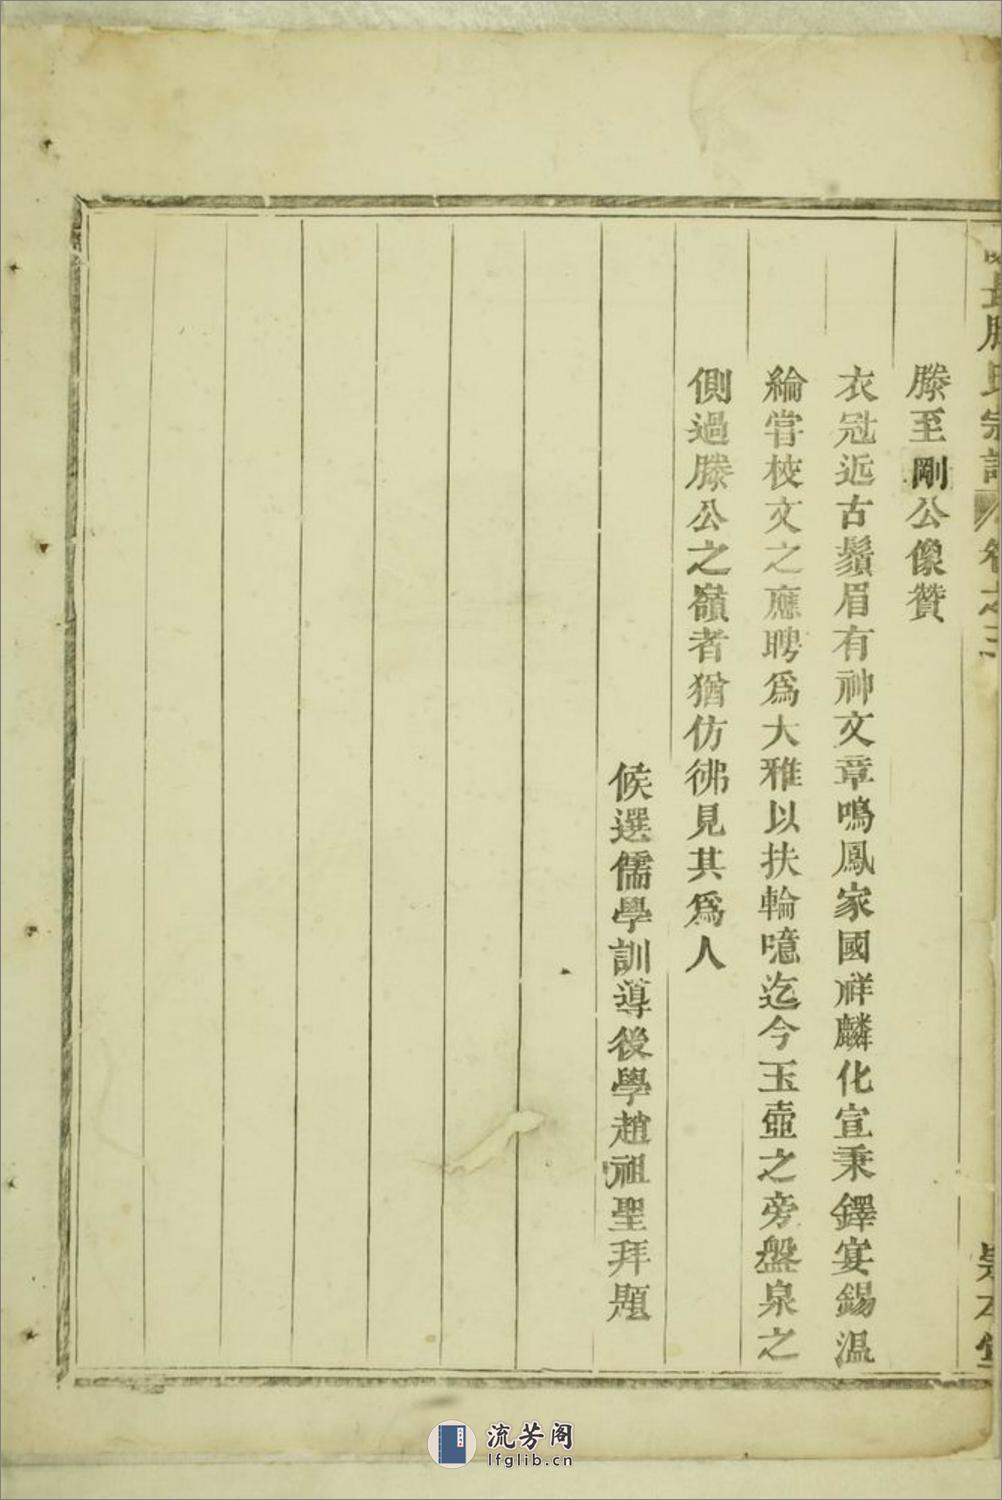 宗譜 卷之三
滕至剛公像贊
衣冠近古鬚眉有神文章鳴鳳家國祥麟化宣秉鐸宴錫溫
綸嘗校文之應聘爲大雅以扶輪噫迄今玉壺之旁盤泉之
側過滕公之嶺者猶仿彿見其爲人
候選儒學訓導後學趙祖聖拜題
流芳阁
lfglib.cn